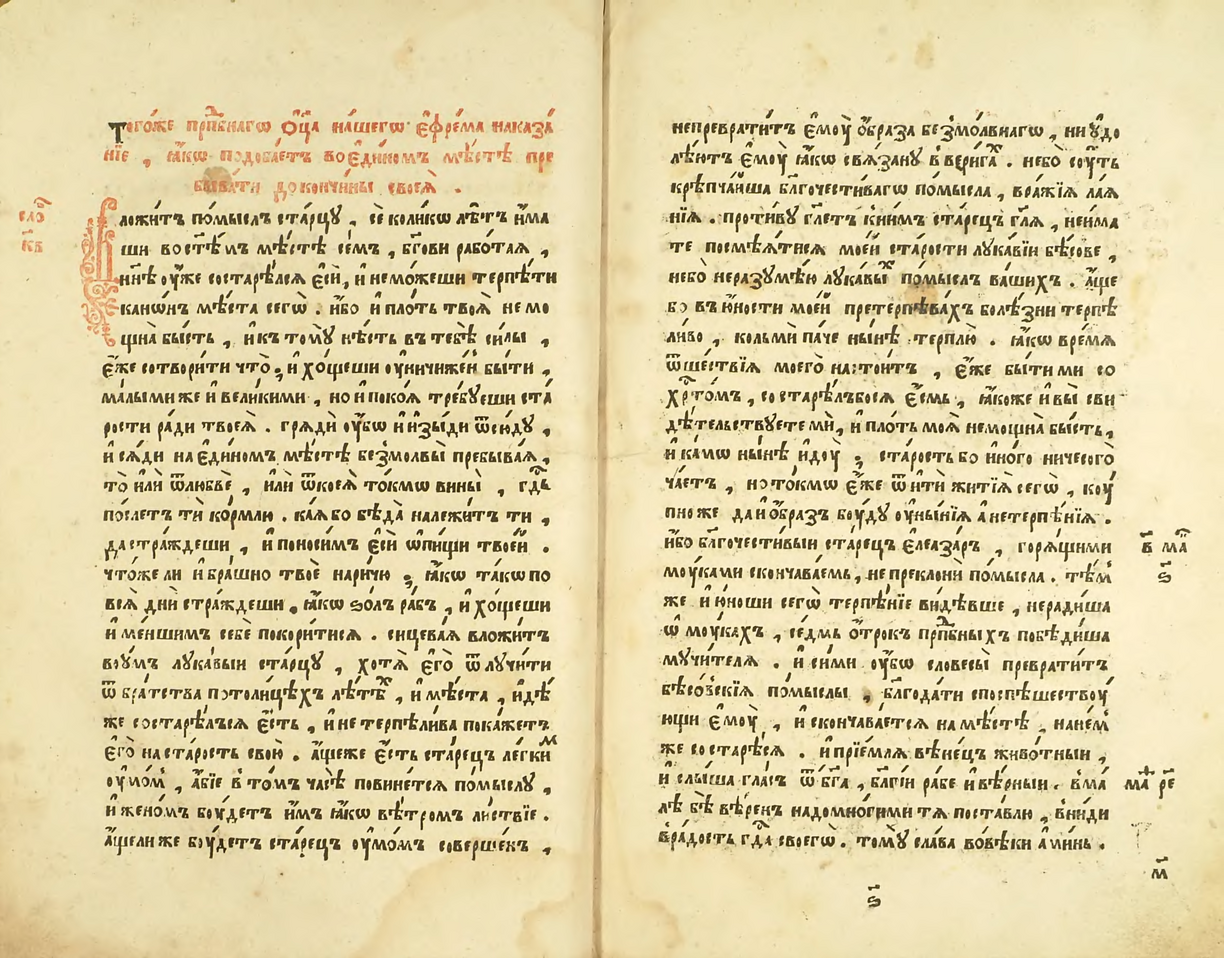 Тогѡ́же прпⷣбнагѡ ѻ҆ц҃а на́шегѡ є҆фре́ма наказа́
нїе , ꙗ҆́кѡ подоба́етъ воеди́номъ мѣ́стѣ пре
быва́ти доконч́ины своеѧ̀ .
сло́
к҃в
Вложи́тъ по́мыслъ ста́рцꙋ , се коли́кѡ лѣ́тъ и҆ма
ши востѣ́мъ мѣ́стѣ се́мъ , бг҃ови рабо́таѧ ,
нн҃ѣ оу҆́же состарѣ́лсѧ є҆сѝ , и҆ немо́жеши терпѣ́ти
канѡ́нъ мѣ́ста сегѡ̀ . и҆́бо и҆ пло́ть твоѧ̀ немо
щна̀ бы́сть , и҆ к томꙋ̀ нѣ́сть в тебѣ̀ си́лы ,
є҆́же сотвори́ти что̀ , и҆ хо́щеши оу҆ничиже́н бы́ти ,
ма́лыми же и҆ вели́кими , но и҆ поко́ѧ тре́бꙋеши ста́
рости ра́ди твоеѧ̀ . грѧдѝ оу҆́бѡ и҆ и҆зы́ди ѿсю́дꙋ ,
и҆ сѧ́ди на є҆ди́номъ мѣ́стѣ безмо́лвы̀ пребыва́ѧ ,
то̀ и҆лѝ ѿлюбвѐ , и҆лѝ ѿкоеѧ̀ то́кмѡ вины̀ , гдⷭ҇ь
по́слетъ тѝ ко́рмли . ка́ѧ бо бѣда̀ належи́тъ ти ,
да стра́ждеши , и҆ поноси́мъ є҆сѝ ѡ҆ пи́щи твое́й .
что́же ли и҆ бра́шно твоѐ нари́чю , ꙗ҆́кѡ та́кѡ по
всѧ̀ днѝ стра́ждеши , ꙗ҆́кѡ ѕо́лъ ра́бъ , и҆ хо́щеши
и҆ ме́ншимъ себѐ покори́тисѧ . сицева́ѧ вложи́тъ
воу҆́мъ лꙋка́выи ста́рцꙋ , хотѧ̀ є҆го̀ ѿлꙋчи́ти
ѿ бра́тства по толи́цѣхъ лѣ́тѣⷯ , и҆ мѣ́ста , и҆дѣ́
же состарѣ́лъсѧ є҆́сть , и҆ не терпѣли́ва пока́жетъ
є҆го̀ на ста́рость свою̀ . а҆́щеже є҆́сть ста́рецъ ле́гкиⷨ
оу҆мо́м , а҆́бїе в то́мъ часѣ̀ пови́нетсѧ по́мыслꙋ ,
и҆ жено́мъ бꙋ́детъ и҆́мъ ꙗ҆́кѡ вѣ́тромъ ли́ствїе .
а҆́щели же бꙋ́детъ ста́рецъ оу҆мо́мъ соверше́нъ ,
непреврати́тъ є҆моу̀ ѻ҆́браза безмо́лвнагѡ , ни оу҆до
лѣ́ютъ є҆моу̀ ꙗ҆́кѡ свѧ́занꙋ в вери́гаⷯ . не́бо сꙋ́ть
крѣпча́йша бл҃гочести́вагѡ по́мысла , вра́жїѧ лаѧ
нїѧ . проти́вꙋ гл҃етъ к ни́мъ ста́рецъ гл҃ѧ , не и҆́ма
те посмѣѧ́тисѧ мое́й ста́рости лꙋка́вїи бѣ́сове ,
не́бо неразꙋмѣ́ю лꙋка́выⷯ по́мыслъ ва́шихъ . а҆́ще
бо въ ю҆́ности мое́й претерпѣва́хъ болѣ́зни терпѣ
ли́во , кольмѝ па́че ны́нѣ терплю̀ . ꙗ҆́кѡ вре́мѧ
ѿше́ствїѧ моего̀ насто́итъ , є҆́же бы́ти ми со
хрⷭ҇то́мъ , состарѣ́лъбосѧ є҆́смь , ꙗ҆́коже и҆ вы̀ сви
дѣ́тельствꙋете мѝ , и҆ пло́ть моѧ̀ немощна̀ бы́сть ,
и҆ ка́мѡ ны́нѣ и҆доу̀ , ста́рость бо и҆но́го ничесо́го
ча́етъ , но то́кмѡ є҆́же ѿитѝ житїѧ̀ сегѡ̀ , коу
пно же да и҆ ѻ҆́бразъ бꙋ́дꙋ оу҆ны́нїѧ а҆ нетерпѣ́нїѧ .
и҆́бо бл҃гочести́выи ста́рецъ є҆леаза́ръ , горѧ́щими
в҃ ма
ѕ҃
моу́ками сконча́ваемь , не преклонѝ по́мысла . тѣ́мⸯ
же и҆ ю҆́ноши сегѡ̀ терпѣ́нїе ви́дѣвше , неради́ша
ѡ҆ моу́кахъ , се́дмь ѻ҆́трокъ прпⷣбныхъ побѣди́ша
мꙋчи́телѧ . и҆ си́ми оу҆́бѡ словесы̀ преврати́тъ
бѣсо́вскїѧ по́мыслы , бл҃года́ти споспѣ́шествоу
ющи є҆моу̀ , и҆ сконча́ваетсѧ на мѣ́стѣ , на не́мⸯ
же состарѣ́сѧ . и҆ прїе́млѧ вѣне́цъ живо́тныи ,
и҆ слы́ша гла́съ ѿ бг҃а , бл҃гі́й ра́бе и҆ вѣ́рныи . в ма́
маⷴ ре҃
лѣ бѣ̀ вѣ́ренъ надомно́гими тѧ поста́влю , вни́ди
в ра́дость гдⷭ҇а своегѡ̀ . томꙋ̀ сла́ва вовѣ́ки а҆ми́нь .
м҃
ѕ҃